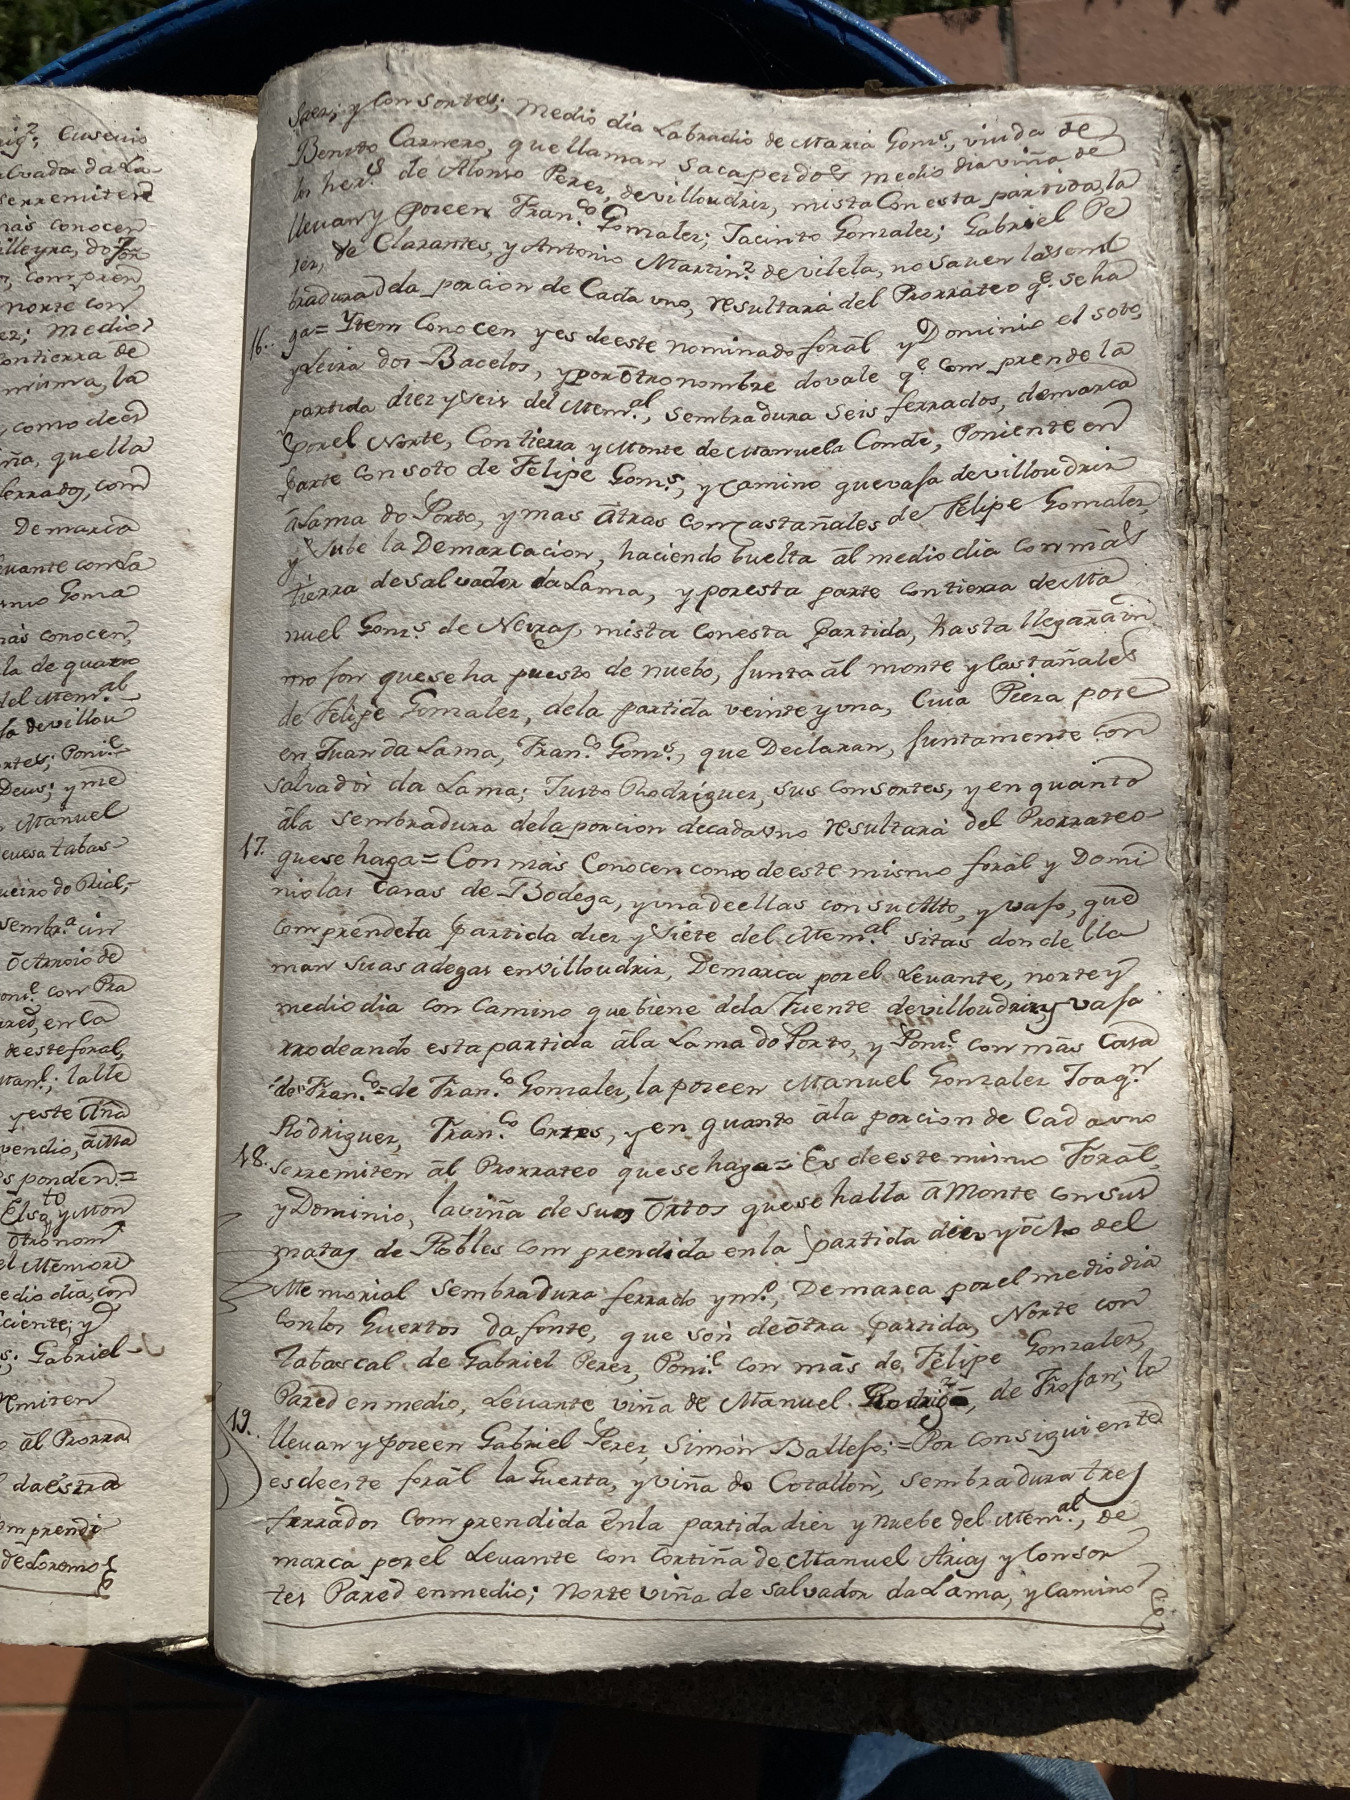 rig.z Eusevio
alvada da La
serremiten
mas conocen
norte con
ez; medio
contierra de
misma, la
y como deer
ña, que lla
ferrados, con
Demarca
evante con la
mo Goma
mas conocen,
la de quatro
del Mem.al
sa de villou
Deus; y me
Manuel
devesa tabas
ueiro do Rial,
sembr.a un
on.e con Pra
ared, en la
de este foral,
y este Aña
vendio, á Ma
sponden =
otro nom
el Memori
edio dia, con
ciente; y
s; Gabriel
remiten
al Prorra
da estra
omprendi
de doromo
y Consortes; medio dia Labradio de Maria Gom.s, viuda de
Benito Carnero, que llaman Sacapeidos medio dia viña de
los her.s de Alonso Perez, de villoudriz, mista Con esta partida, la
llevan y poseen Fran.co Gonzalez; Jacinto Gonzalez; Gabriel Pe
rez, de Clarantes, y Antonio Martin.z de vilela, no saven la sem
bradura dela porcion de Cada uno, resultará del Prorrateo q.e se ha
16. ga = Ytem Conocen y es de este nominado forál y Dominio el soto,
y Leira dos Bacelos, y por ótro nombre do vale q.e Comprende la
partida diez y seis del Mem.al, sembradura seis ferrados, demarca
por el Norte, Con tierra y Monte de Manuela Conde, Poniente en
parte con soto de Felipe Gom.s, y camino que vasa de villoudriz
á Lama do Porto, y mas átras con castañales de Felipe Gonzalez
y sube la Demarcacion, haciendo buelta ál medio dia con más
tierra de Salvador da Lama, y por esta parte con tierra de Ma
nuel Gom.s de Neiras, mista con esta partida, hasta llegar á un
mo jon que se ha puesto de nuebo, junta ál monte y Castañales
de Felipe Gonzalez, dela partida veinte y una, Cuia Pieza pose
en, Juan da Lama, Fran.co Gom.s, que Declaran, juntamente con
Salvadór da Lama; Justo Rodriguez, sus consortes, y en quanto
ála sembradura dela porcion de cada uno resultará del Prorrateo
17. que se haga = Con más Conocen como de este mismo forál y Domi
nio las Casas de Bodega, y una de ellas con su Alto, y vaso, que
comprende la partida diez y siete del Mem.al sitas donde lla
man suas adegas en villoudriz, Demarca por el Levante, norte y
mediodia con Camino que biene dela Fuente de villoudriz y vasa
rrodeando esta partida ála Lama do Porto, y Pon.e con más Casa
do Fran.co = de Fran.co Gonzalez, la poseen Manuel Gonzalez Joaq.n
Rodriguez, Fran.co Cortes, y en quanto ála porcion de Cada uno
18. serremiten ál Prorrateo que se haga = Es de este mismo Forál,
y Dominio, la viña de suas Ortos que se halla á Monte con sus
matas de Robles comprendida en la partida diez y ócho del
Memorial sembradura ferrado y m.o, Demarca por el medio dia
con los Guertos da fonte, que són de ótra partida, Norte con
tabascal de Gabriel Perez, Poni.e con más de Felipe Gonzalez,
Pared en medio, Levante viña de Manuel Rodrig.z, de Frojan; la
19. llevan y poseen Gabriel Perez, Simón Ballejo; = Por consiguiente
es de este forál la Guerta, y viña do Cotallón, sembradura tres
ferrádos Comprendida énla partida diez y nuebe del Mem.al, de
marca por el Levante con Cortiña de Manuel Arias y Consor
tes Pared en medio; Norte viña de Salvador da Lama, y Camino